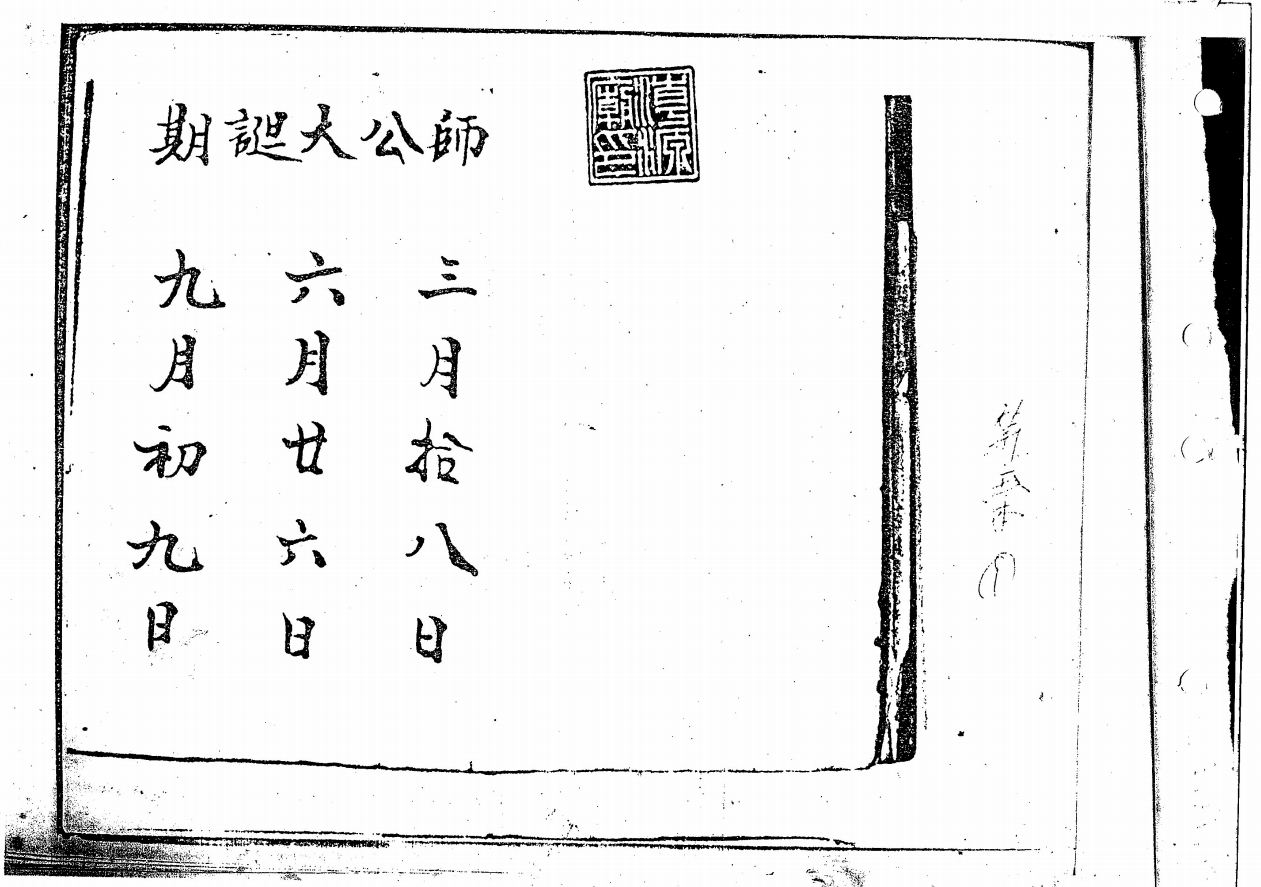 師公大誕期
三月拾八日
六月廿六日
九月初九日